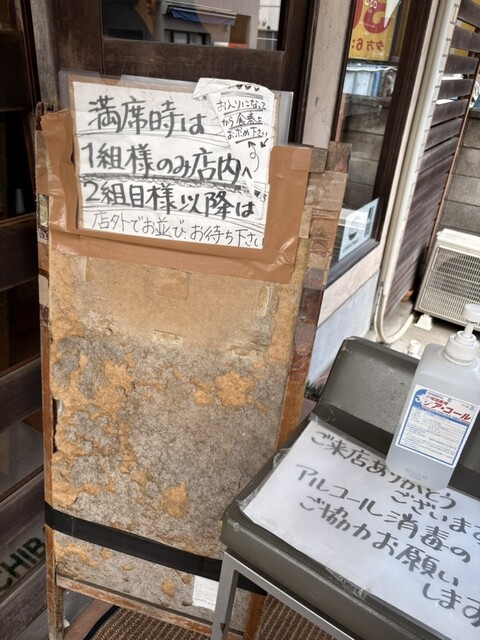 満席時は
1組様のみ店内へ
2組目様以降は
店外でお並び、お待ち下さい
お入りになって
から食券を
お求め下さい
ご来店ありがとう
ございます
アルコール消毒の
ご協力お願い
します
CHIB
夕方6: